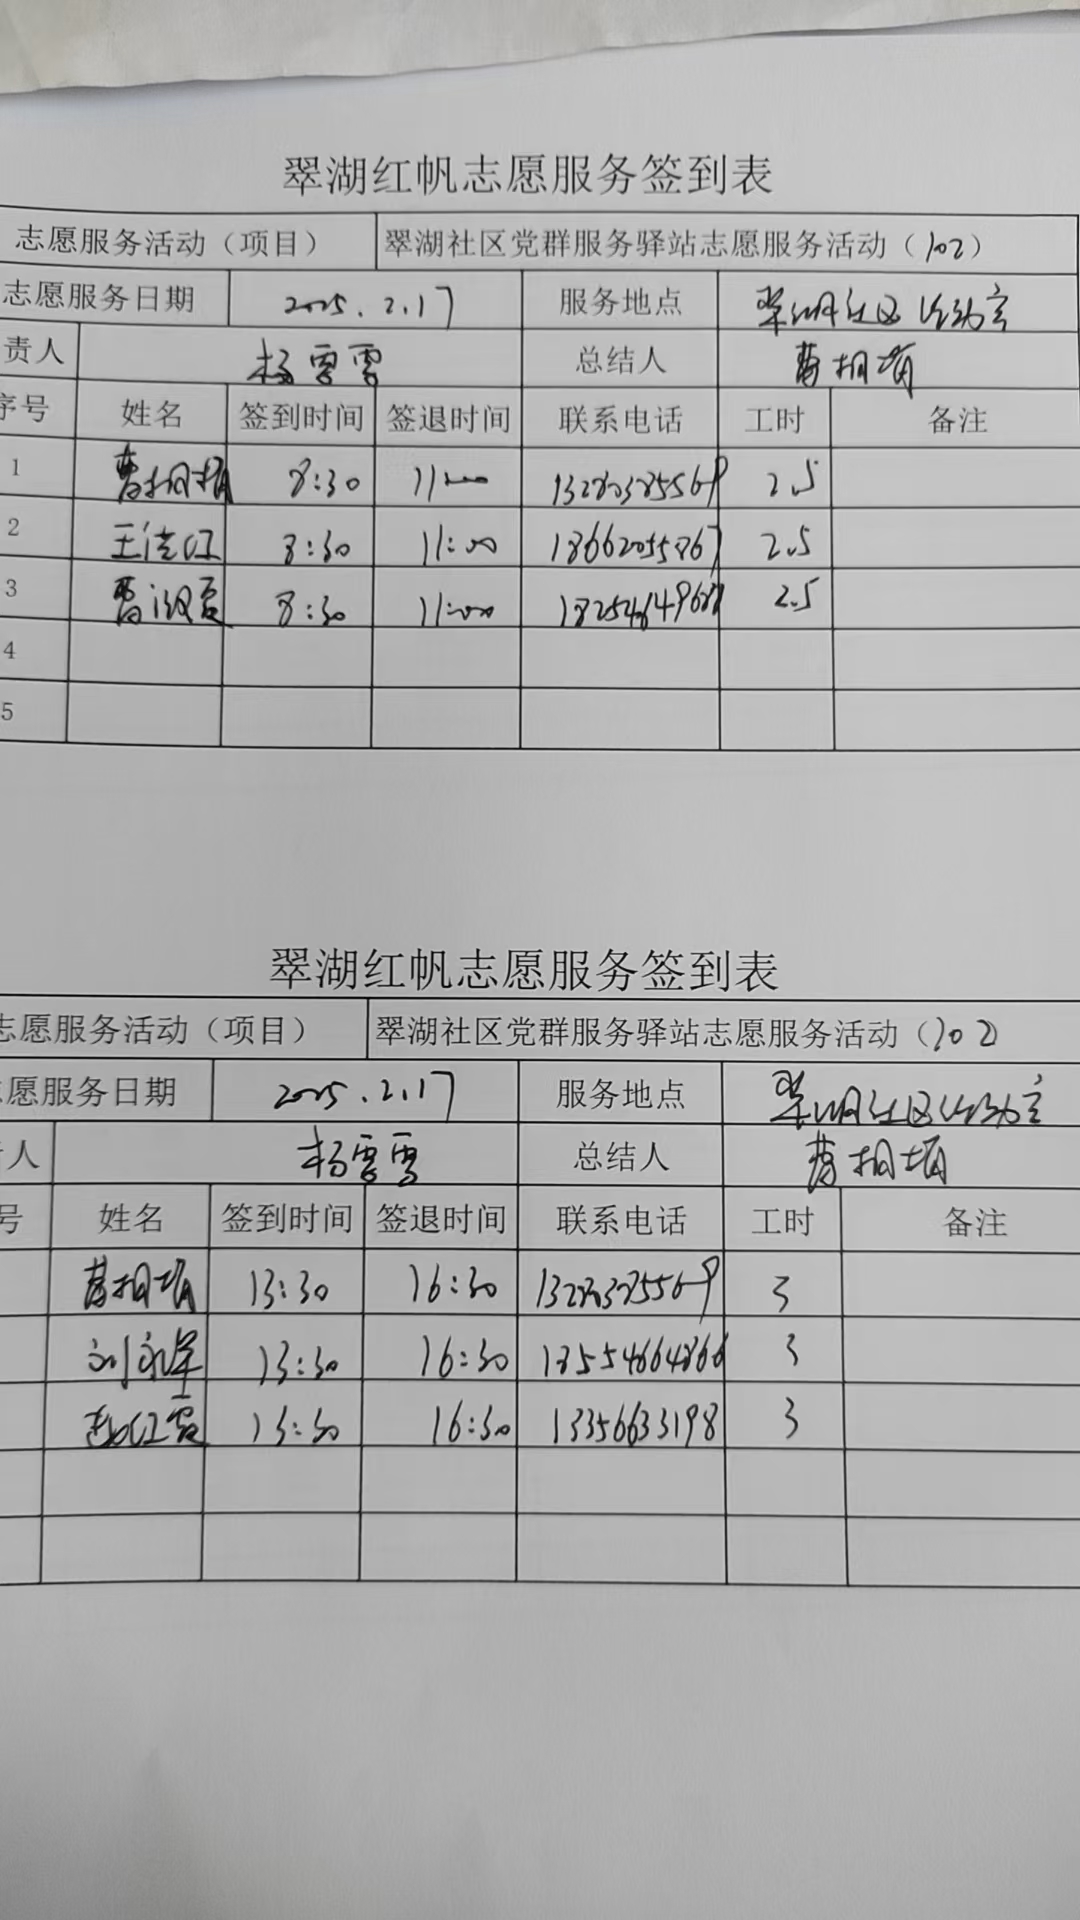 翠湖红帆志愿服务签到表
志愿服务活动（项目） 翠湖社区党群服务驿站志愿服务活动（102）
志愿服务日期 2025.2.17 服务地点 翠湖社区活动室
责人 杨雪雪 总结人 曹相娟
序号 姓名 签到时间 签退时间 联系电话 工时 备注
1 8:30 11:00 2.5
2 王 8:30 11:00 2.5
3 曹淑霞 8:30 11:00 2.5
4
5
翠湖红帆志愿服务签到表
志愿服务活动（项目） 翠湖社区党群服务驿站志愿服务活动（102
愿服务日期 2025.2.17 服务地点 翠湖社区活动室
人 杨雪雪 总结人
号 姓名 签到时间 签退时间 联系电话 工时 备注
13:30 16:30 3
刘永军 13:30 16:30 18554664866 3
赵红霞 13:30 16:30 13356633198 3